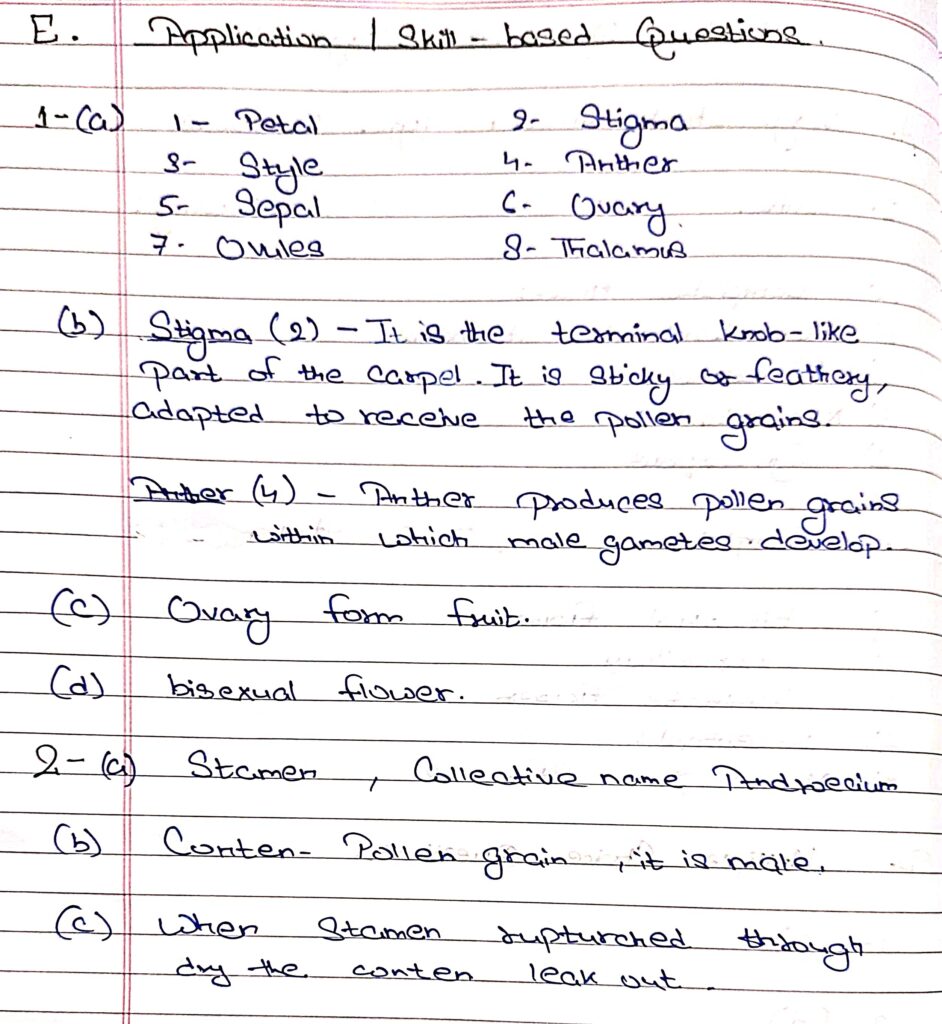 E. Application / Skill - based Questions.
1-(a) 1- Petal 2- Stigma
3- Style 4- Anther
5- Sepal 6- Ovary
7- Ovules 8- Thalamus
(b) Stigma (2) - It is the terminal knob-like
part of the carpel. It is sticky or feathery,
adapted to receive the pollen grains.
Anther (4) - Anther produces pollen grains
within which male gametes develop.
(c) Ovary form fruit.
(d) bisexual flower.
2-(a) Stamen, Collective name Androecium
(b) Conten- Pollen grain, it is male.
(c) When Stamen rupturched through
dry the conten leak out.